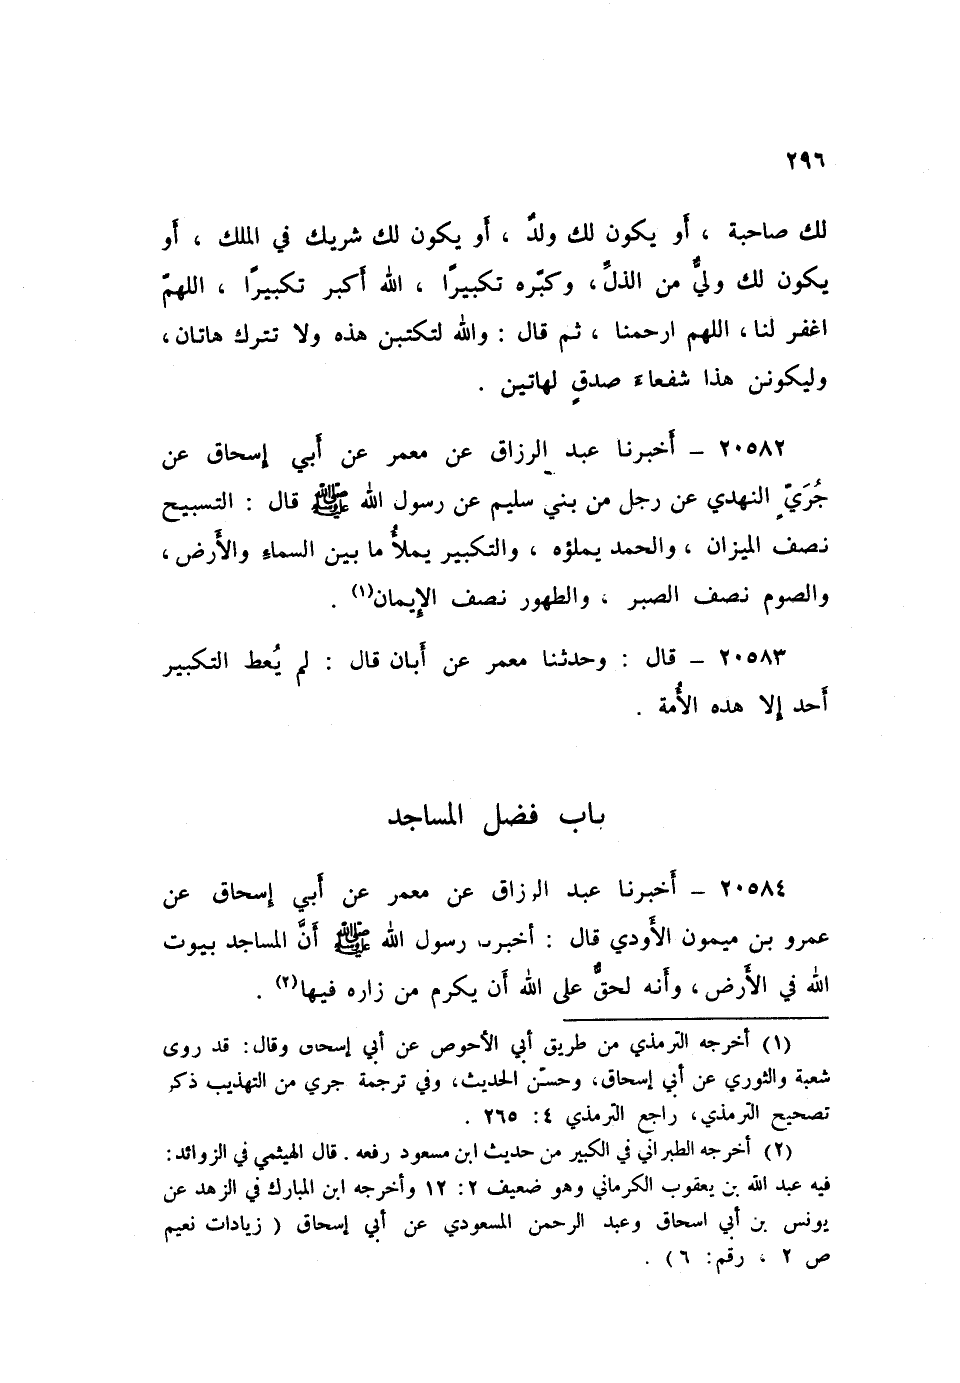 ٢٩٦
لك صاحبة ، أَو يكون لك ولدٌ ، أَو يكون لك شريك في الملك ، أَو
يكون لك وليٌّ من الذلِّ، وكبّره تكبيرًا ، الله أَكبر تكبيرًا ، اللهمّ
اغفر لنا، اللهم ارحمنا ، ثم قال : والله لتكتبن هذه ولا تترك هاتان،
وليكونن هذا شفعاءَ صدقٍ لهاتين .
٢٠٥٨٢ – أَخبرنا عبد الرزاق عن معمر عن أَبي إِسحاق عن
جُرَيّ النهدي عن رجل من بني سليم عن رسول الله ﷺ قال : التسبيح
نصف الميزان ، والحمد يملؤه ، والتكبير يملأُ ما بين السماءِ والأَرض،
والصوم نصف الصبر ، والطهور نصف الإِيمان(١) .
٢٠٥٨٣ – قال : وحدثنا معمر عن أَبان قال : لم يُعط التكبير
أَحد إِلا هذه الأُمة .
باب فضل المساجد
٢٠٥٨٤ – أَخبرنا عبد الرزاق عن معمر عن أَبي إِسحاق عن
عمرو بن ميمون الأَودي قال : أخبرب رسول الله ﷺ أَنَّ المساجد بيوت
الله في الأَرض، وأَنه لحقٌّ على الله أَن يكرم من زاره فيها(٢) .
(١) أخرجه الترمذي من طريق أبي الأحوص عن أبي إسحاق وقال: قد روى
شعبة والثوري عن أبي إسحاق، وحسّن الحديث، وفي ترجمة جري من التهذيب ذكر
تصحيح الترمذي، راجع الترمذي ٤: ٢٦٥ .
(٢) أخرجه الطبراني في الكبير من حديث ابن مسعود رفعه . قال الهيثمي في الزوائد :
فيه عبد الله بن يعقوب الكرماني وهو ضعيف ٢: ١٢ وأخرجه ابن المبارك في الزهد عن
يونس بن أبي اسحاق وعبد الرحمن المسعودي عن أبي إسحاق ( زيادات نعيم
ص ٢ ، رقم: ٦) .